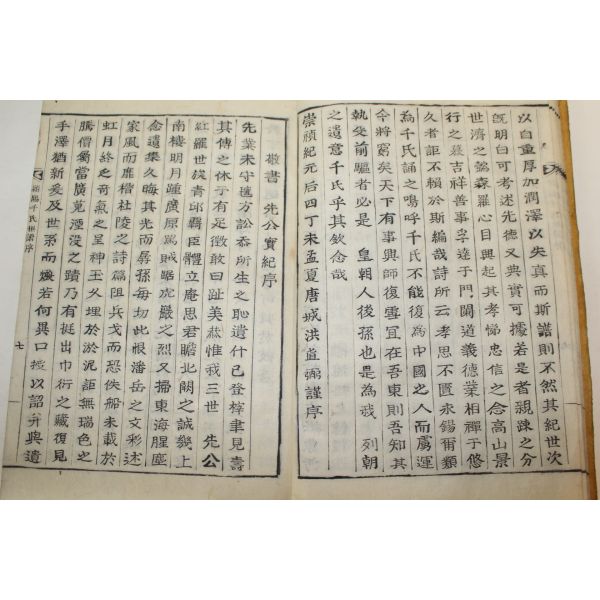 以自重厚加潤澤以失真而斯譜則不然其紀世次
旣明白可考述先德又典實可據若是者親踈之分
世濟之懿森羅心目興起其孝悌忠信之念高山景
行之發吉祥善事孚達于門闌道義德業相禪于悠
久者詎不賴於斯編哉詩所云孝思不匱永錫爾類
爲千氏誦之嗚呼千氏不能復爲中國之人而虜運
今將窮矣天下有事興師復雪宜在吾東則吾知其
執殳前驅者必是 皇朝人後孫也是爲我 列朝
之遺意千氏乎其欽念哉
崇禎紀元后四丁未孟夏唐城洪直弼謹序
敬書 先公實紀序
先業未守毯方訟忝所生之恥遺什已登梓聿見壽
其傳之休于有足徵敢曰趾美菾惟我三世 先公
紅羅世後青邱覇臣體立庵思君瞻北闕之誠幾上
南樓明月踵廣原罵賊
虎嚴之烈又掃東海腥塵
念遺集久晦其光而孱孫每切此恨潘岳之文彩述
家風而靡楷社陵之詩篇阻兵戈而恐佚船未載於
虹月終之奇氣之呈神玉久埋於淤泥詎無瑞色之
騰價獨當廣蒐湮沒之蹟乃有挺出巾衍之藏復見
手澤猶新爰及世系而煥若何異口授以詔幷與遺
七